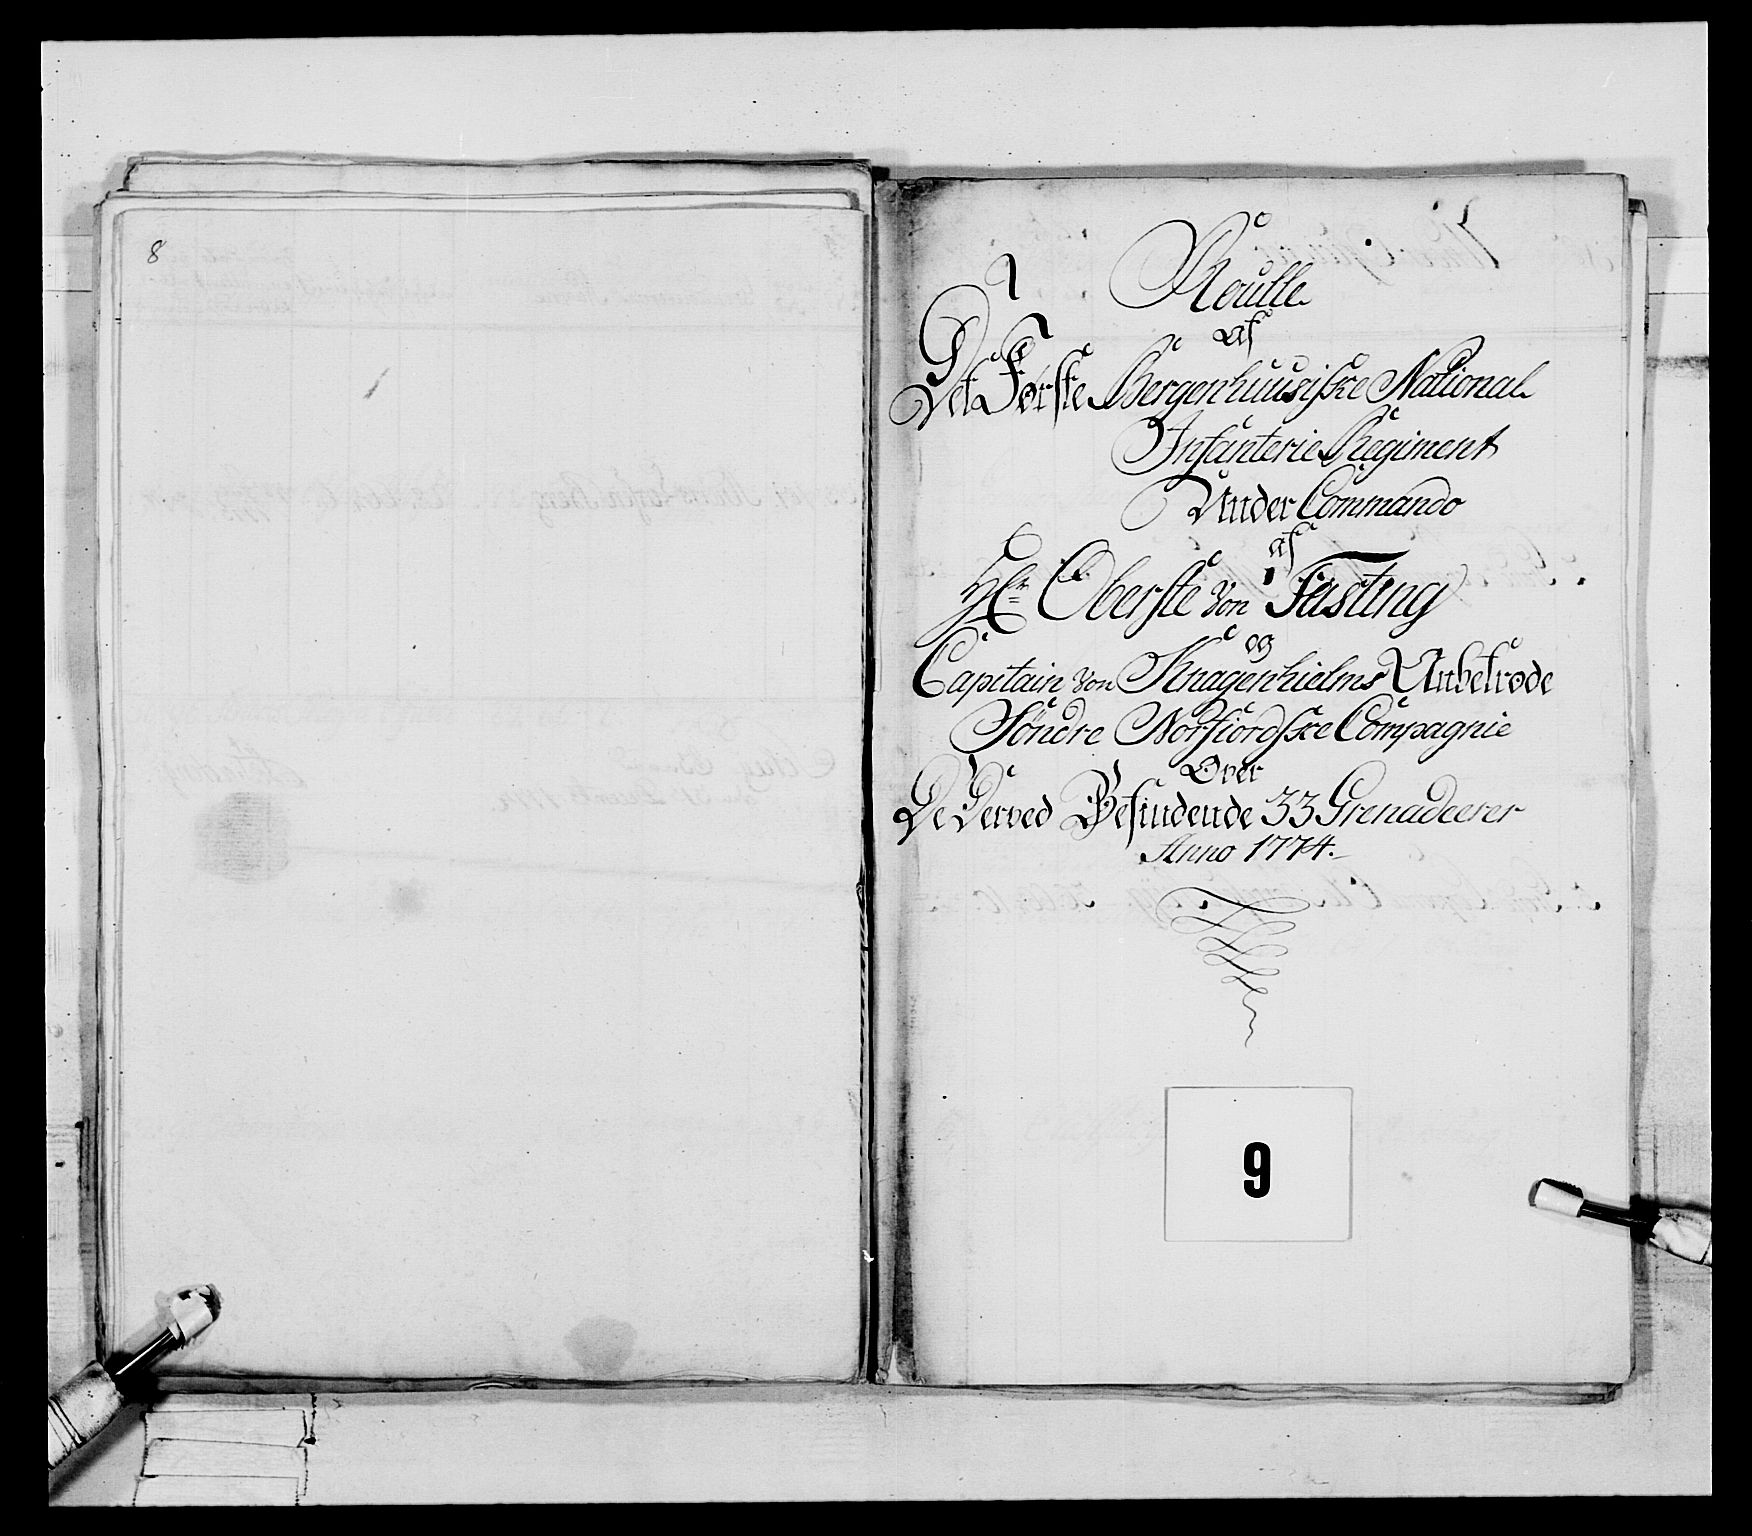 8
Roulle
af
Det Første Bergenhuusiske National
Infanterie Regiment
Under Commando
af
Hr Oberste von Fasting
og
Capitain von Knagenhielms Anbetrode
Søndre Norfiordske Compagnie
Over
De Derved Befindende 33 Grenadeerer
Anno 1774.
9